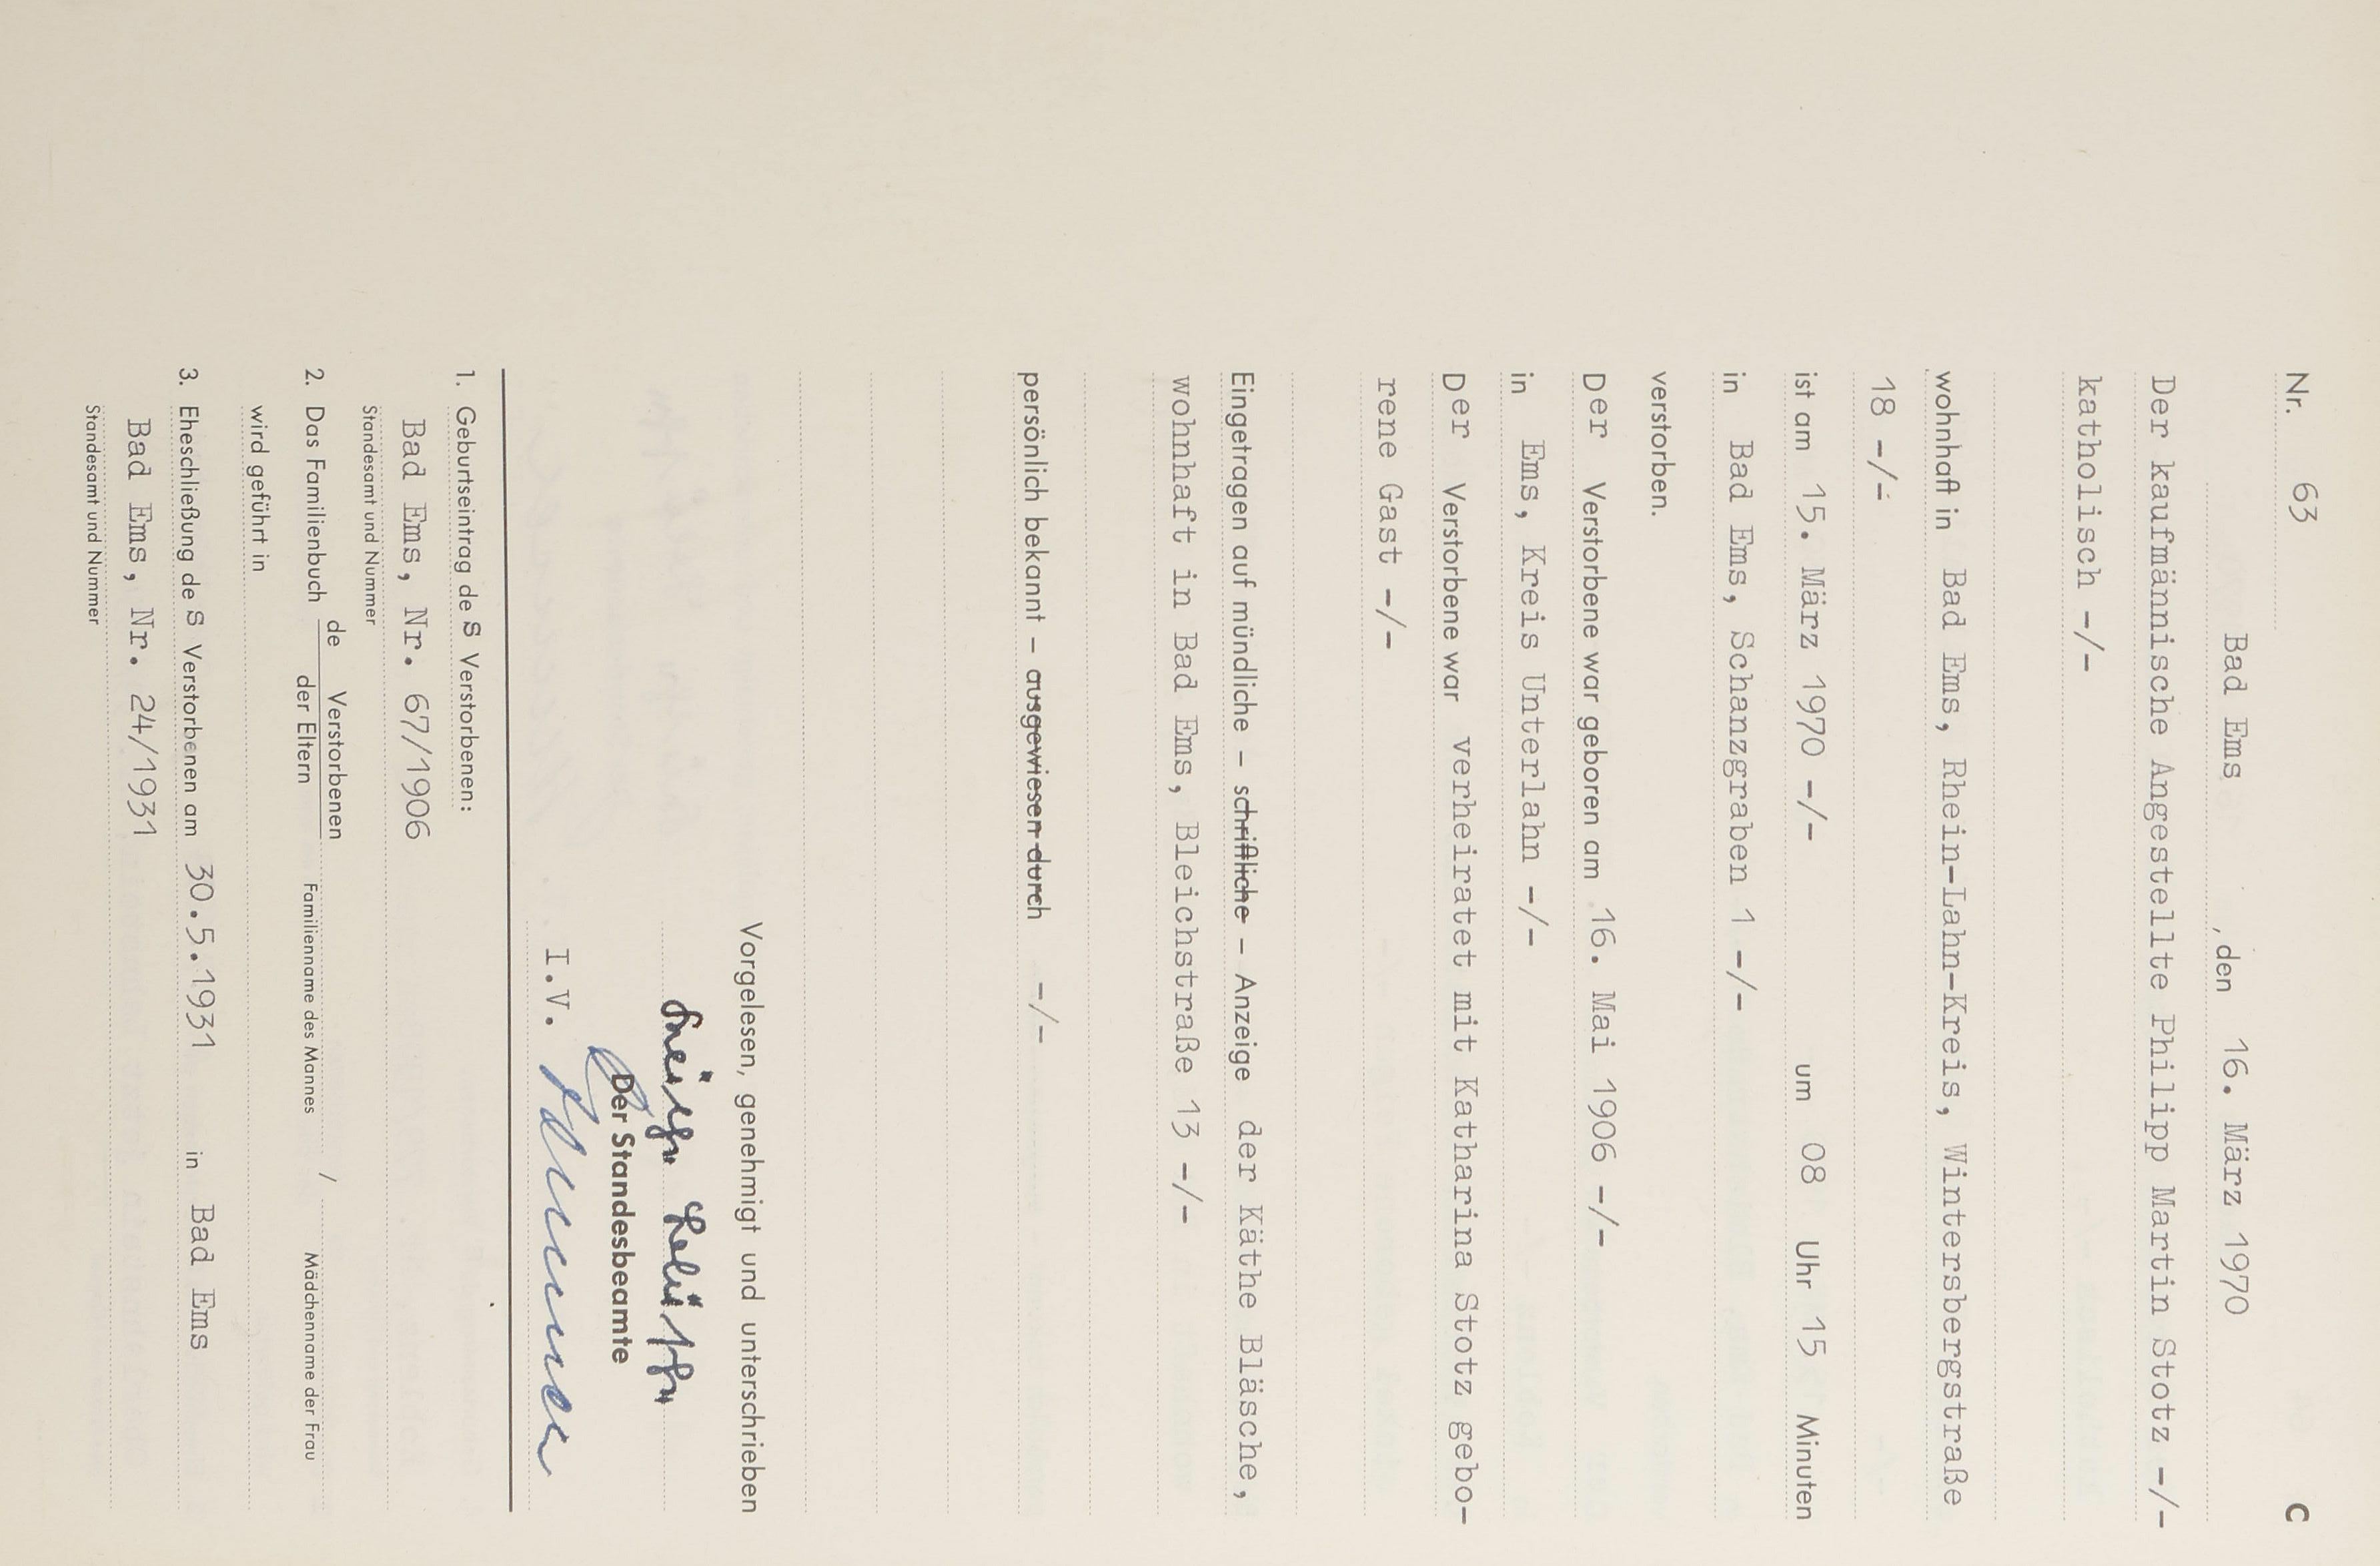 Nr. 63 C
Bad Ems , den 16. März 1970
Der kaufmännische Angestellte Philipp Martin Stotz -/-
katholisch -/-
wohnhaft in Bad Ems, Rhein-Lahn-Kreis, Wintersbergstraße
18 -/-
ist am 15. März 1970 -/- um 08 Uhr 15 Minuten
in Bad Ems, Schanzgraben 1 -/-
verstorben.
Der Verstorbene war geboren am 16. Mai 1906 -/-
in Ems, Kreis Unterlahn -/-
Der Verstorbene war verheiratet mit Katharina Stotz gebo-
rene Gast -/-
Eingetragen auf mündliche – schriftliche – Anzeige der Käthe Bläsche,
wohnhaft in Bad Ems, Bleichstraße 13 -/-
persönlich bekannt – ausgewiesen durch -/-
Vorgelesen, genehmigt und unterschrieben
Der Standesbeamte
I.V.
1. Geburtseintrag des Verstorbenen:
Bad Ems, Nr. 67/1906
Standesamt und Nummer
2. Das Familienbuch de Verstorbenen
der Eltern Familienname des Mannes / Mädchenname der Frau
wird geführt in
3. Eheschließung des Verstorbenen am 30.5.1931 in Bad Ems
Bad Ems, Nr. 24/1931
Standesamt und Nummer